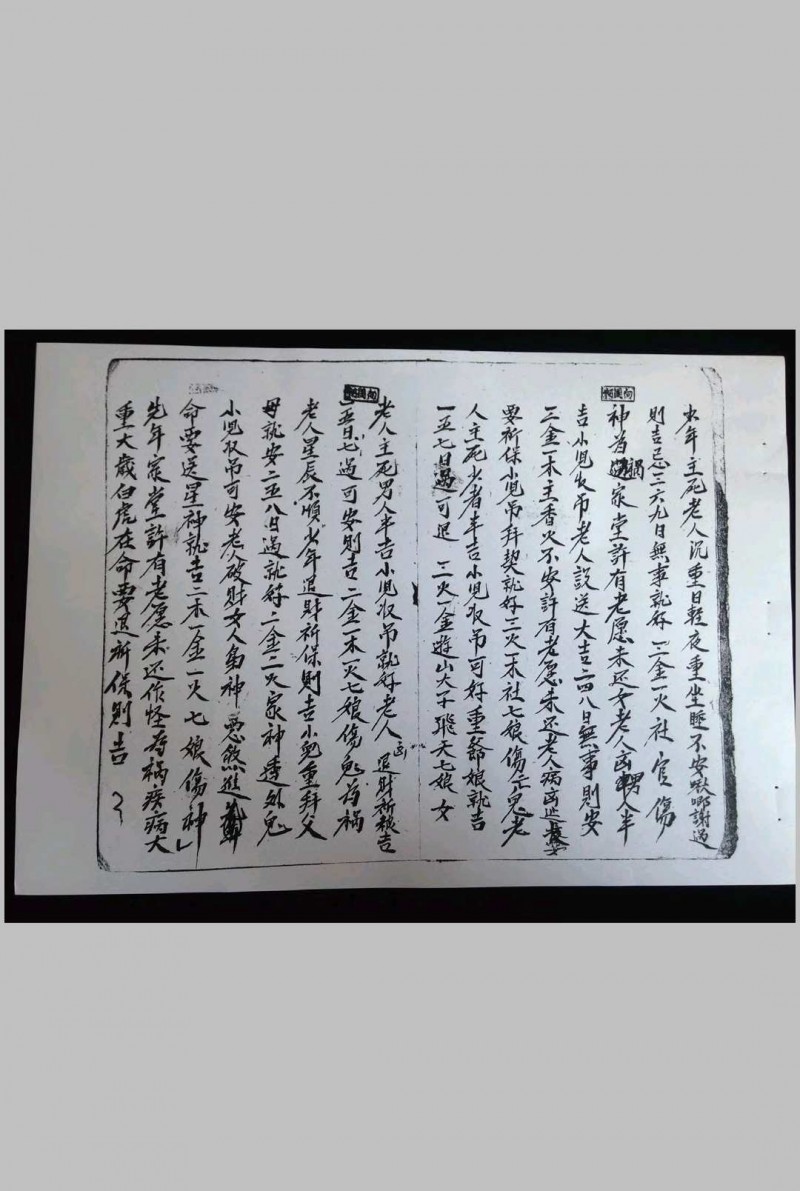 少年主死老人沉重日輕夜重坐睡不安謝過
則吉忌三六九日無事就好 二金一火社官傷
神為禍家堂許有老愿未還女老人凶男人半
吉小児取吊老人設送大吉二四八日無事則安
二金一木主香火不安許有老愿未还老人病凶
要祈保小児吊拜契就好三火一木社七娘傷亡鬼老
人主死少者半吉小児取吊可好重爺娘就吉
一五七日過可退 二火一金遊山大子飛天七娘女
老人主死男人半吉小児取吊就好老人凶退財祈報吉
五日七過可安則吉二金一木一火七娘傷鬼為禍
老人星辰不順少年退財祈保則吉小兒重拜父
母就安二五八日過就好二金二火家神透外鬼
小児取吊可安老人破財女人梟神悪煞進
命要送星神就吉二木一金一火七娘傷神
先年家堂許有老愿未还作怪為禍疾病大
重大歲白虎在命要退祈保則吉